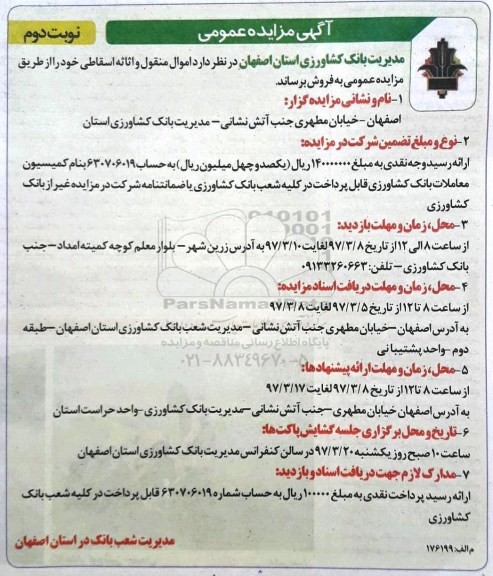 آگهی مزایده عمومی
نوبت دوم
مدیریت بانک کشاورزی استان اصفهان در نظر دارد اموال منقول و اثاثه اسقاطی خود را از طریق
مزایده عمومی به فروش برساند.
۱- نام و نشانی مزایده گزار:
اصفهان - خیابان مطهری جنب آتش نشانی - مدیریت بانک کشاورزی استان
۲- نوع و مبلغ تضمین شرکت در مزایده:
ارائه رسید وجه نقدی به مبلغ ۱۴۰۰۰۰۰۰۰ ریال (یکصد و چهل میلیون ریال) به حساب ۶۳۰۷۰۶۰۱۹ بنام کمیسیون
معاملات بانک کشاورزی قابل پرداخت در کلیه شعب بانک کشاورزی یا ضمانتنامه شرکت در مزایده غیر از بانک
کشاورزی
۳- محل، زمان و مهلت بازدید:
از ساعت ۸ الی ۱۲ از تاریخ ۹۷/۳/۸ لغایت ۹۷/۳/۱۰ به آدرس زرین شهر - بلوار معلم کوچه کمیته امداد - جنب
بانک کشاورزی - تلفن: ۰۹۱۳۳۲۶۰۶۶۳
۴- محل، زمان و مهلت دریافت اسناد مزایده:
از ساعت ۸ تا ۱۲ از تاریخ ۹۷/۳/۵ لغایت ۹۷/۳/۸
به آدرس اصفهان - خیابان مطهری جنب آتش نشانی - مدیریت شعب بانک کشاورزی استان اصفهان - طبقه
دوم - واحد پشتیبانی
۵- محل، زمان و مهلت ارائه پیشنهادها:
از ساعت ۸ تا ۱۲ از تاریخ ۹۷/۳/۸ لغایت ۹۷/۳/۱۷
به آدرس اصفهان خیابان مطهری - جنب آتش نشانی - مدیریت بانک کشاورزی - واحد حراست استان
۶- تاریخ و محل برگزاری جلسه گشایش پاکت ها:
ساعت ۱۰ صبح روز یکشنبه ۹۷/۳/۲۰ در سالن کنفرانس مدیریت بانک کشاورزی استان اصفهان
۷- مدارک لازم جهت دریافت اسناد و بازدید:
ارائه رسید پرداخت نقدی به مبلغ ۱۰۰۰۰۰ ریال به حساب شماره ۶۳۰۷۰۶۰۱۹ قابل پرداخت در کلیه شعب بانک
کشاورزی
م الف: ۱۷۶۱۹۹
مدیریت شعب بانک در استان اصفهان
پایگاه اطلاع رسانی مناقصه و مزایده
۰۲۱-۸۸۳۴۹۶۷۰-۵